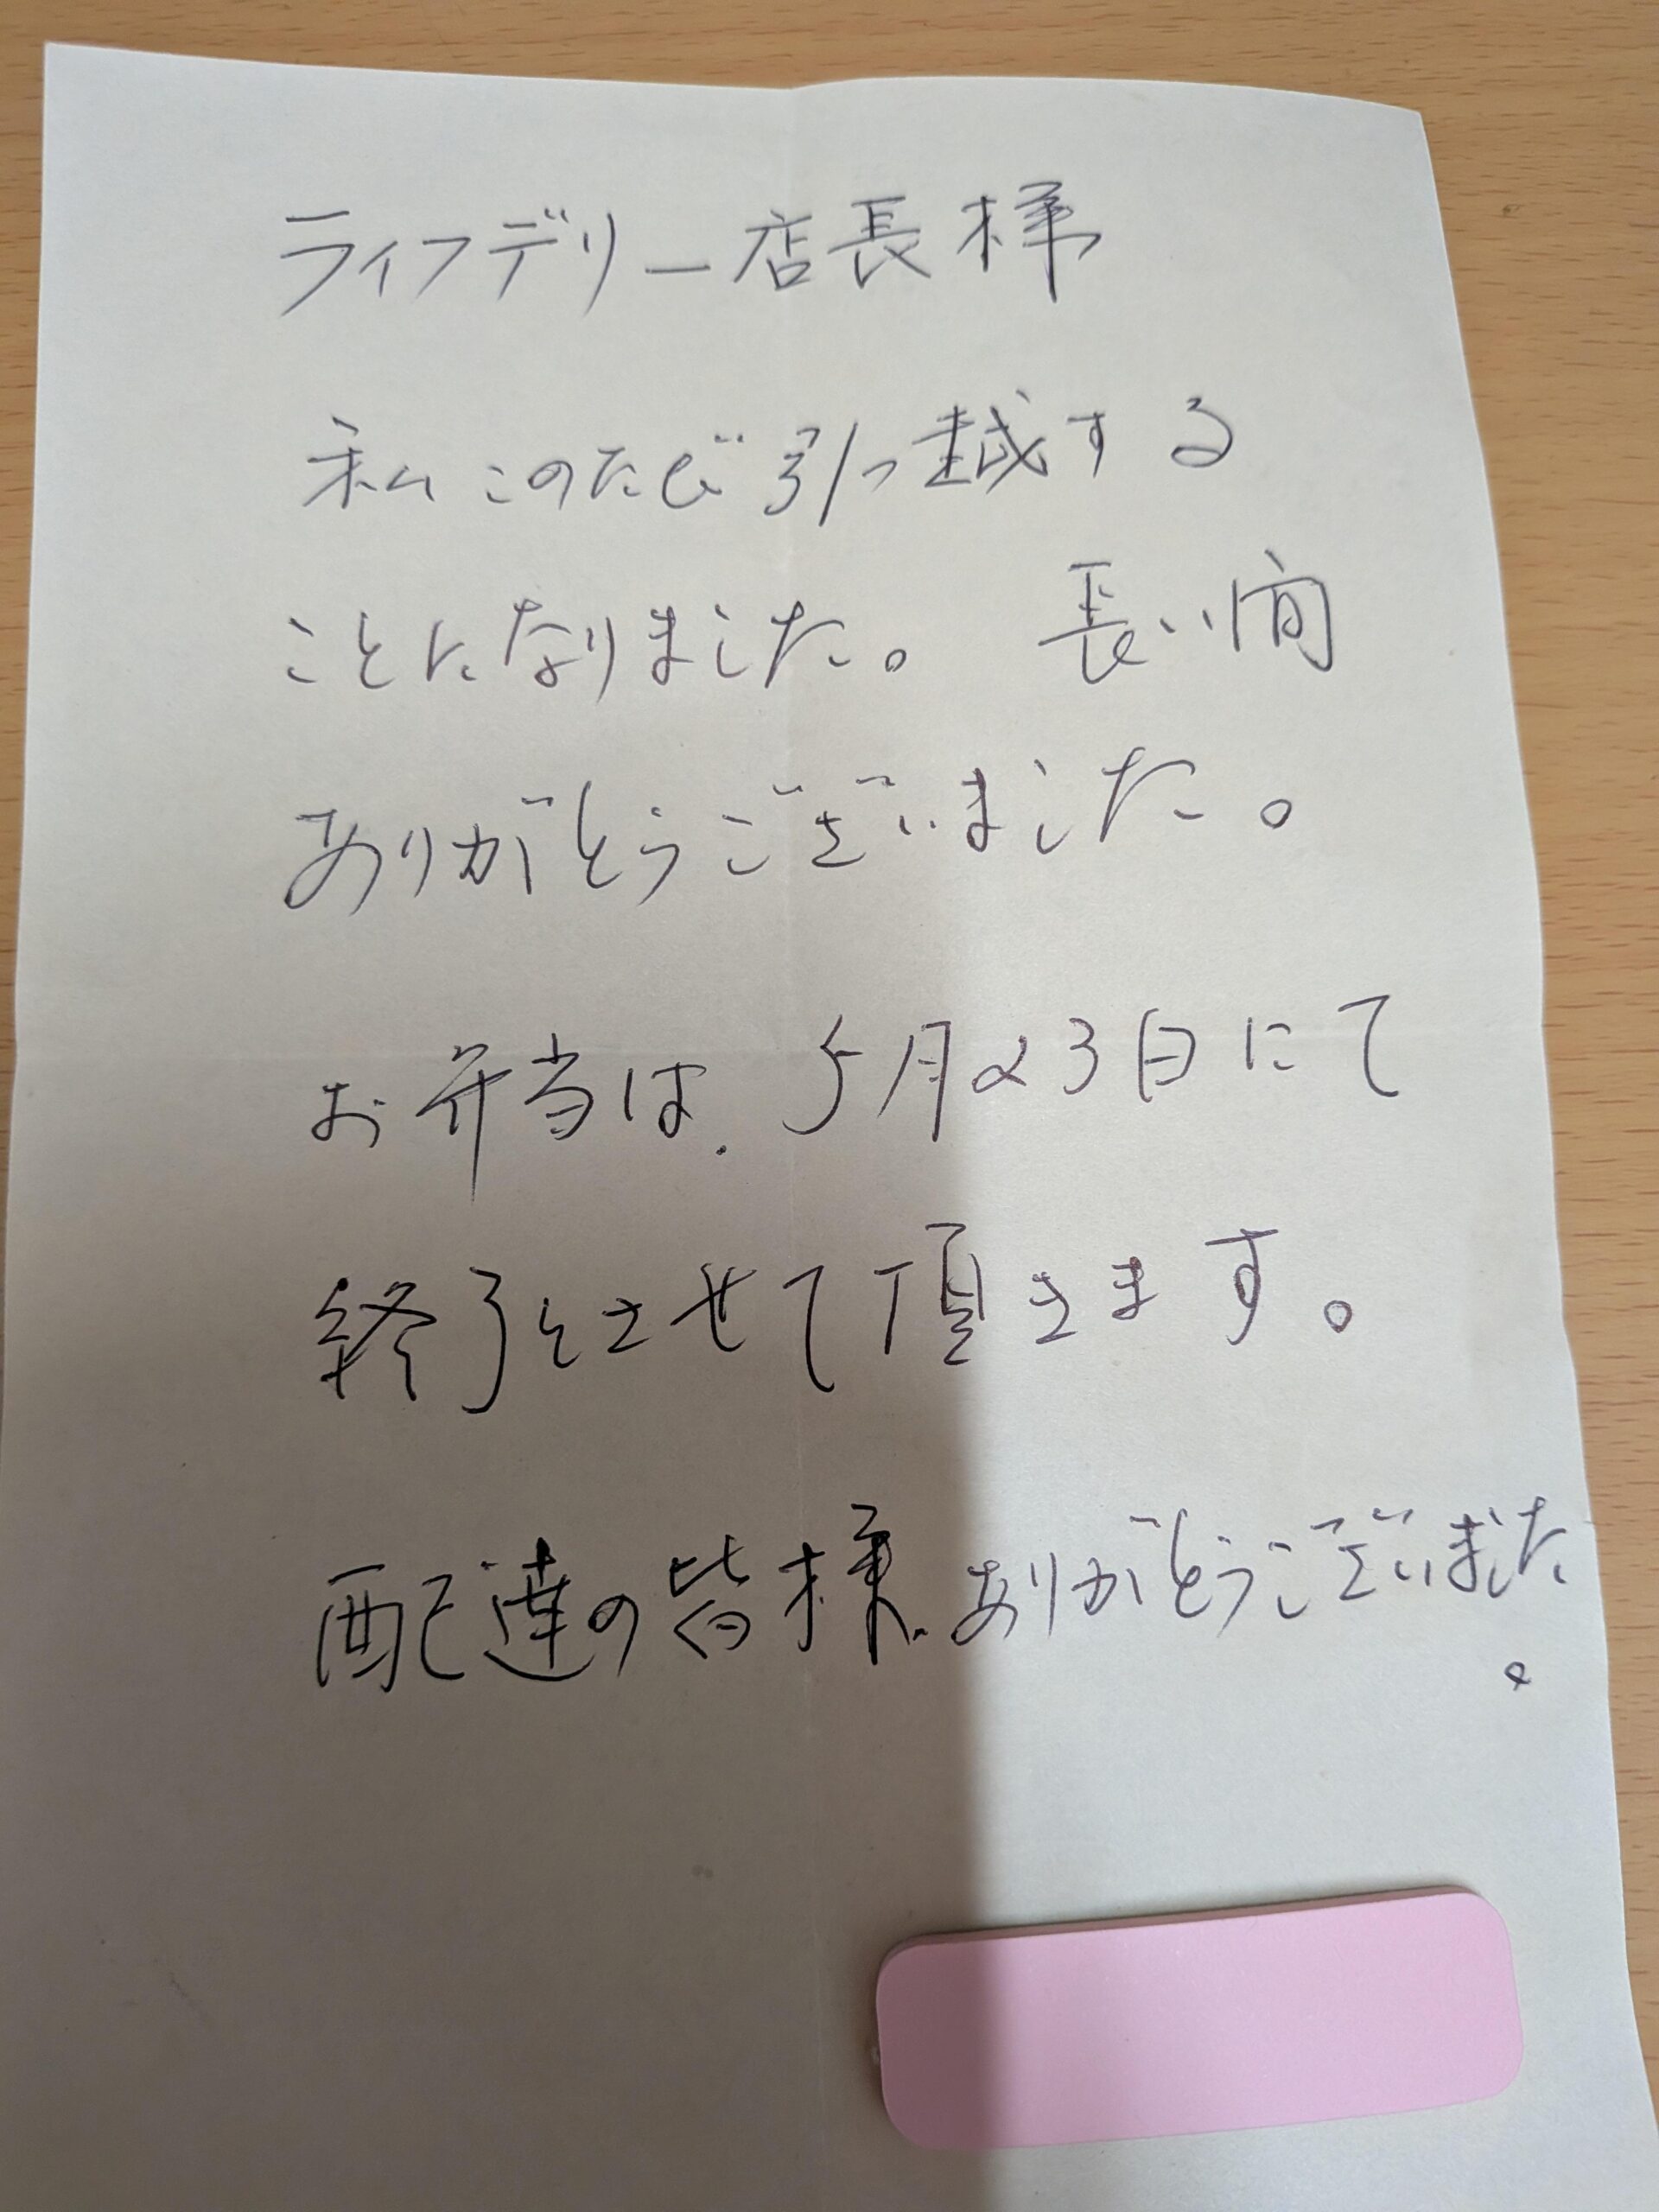 ライフデリー店長様
私このたび引っ越する
ことになりました。 長い間
ありがとうございました。
お弁当は、5月23日にて
終了とさせて頂きます。
配達の皆様、ありがとうございました
。